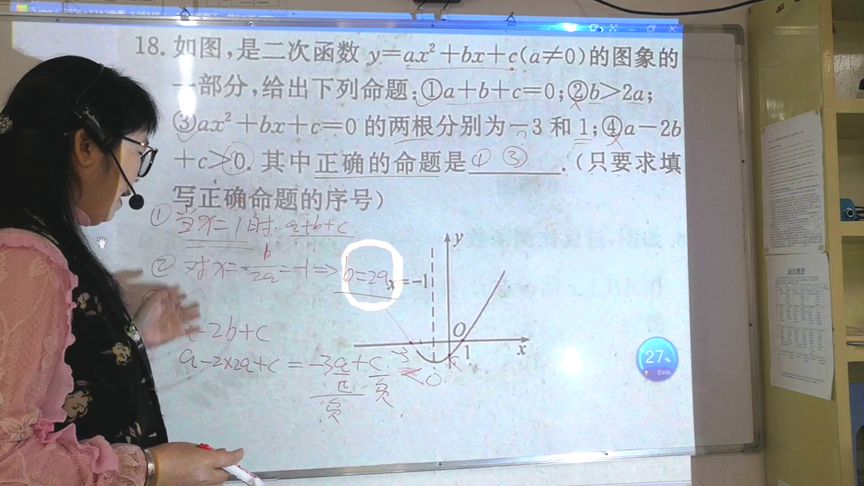 18. 如图,是二次函数 y=ax²+bx+c(a≠0)的图象的
一部分,给出下列命题:①a+b+c=0;②b>2a;
③ax²+bx+c=0 的两根分别为-3 和 1;④a-2b
+c>0. 其中正确的命题是 ① ③ .(只要求填
写正确命题的序号)
① 当x=1时 a+b+c
② 对x=-b/2a=-1⇒b=2a
x=-1
y
-2b+c
a-2×2a+c=-3a+c<0
正 负
负
-3
O
1
x
27%